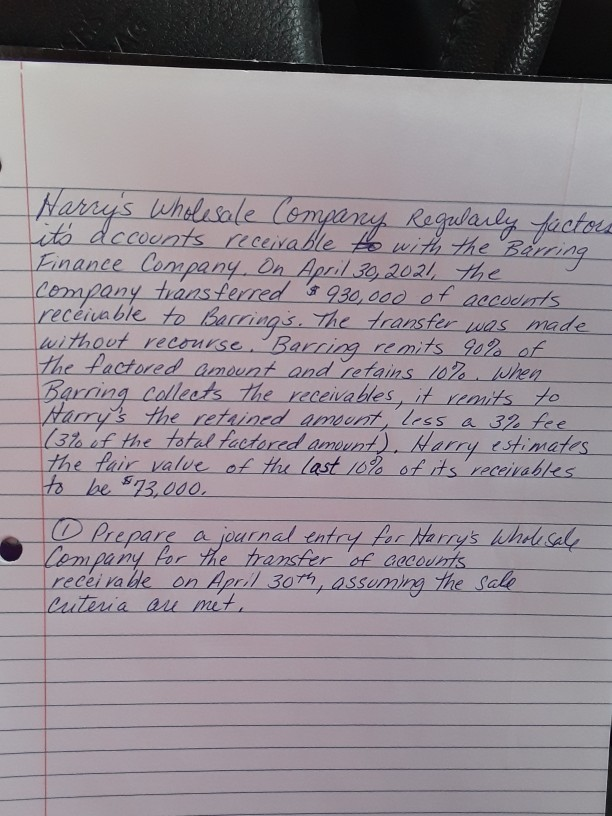 Harry's Wholesale Company Regularly factors
it's accounts receivable to with the Barring
Finance Company. On April 30, 2021, the
company transferred $930,000 of accounts
receivable to Barring's. The transfer was made
without recourse. Barring remits 90% of
the factored amount and retains 10%. When
Barring collects the receivables, it remits to
Harry's the retained amount, less a 3% fee
(3% of the total factored amount). Harry estimates
the fair value of the last 10% of its receivables
to be $73,000.
① Prepare a journal entry for Harry's Wholesale
Company for the transfer of accounts
receivable on April 30th, assuming the sale
criteria are met.